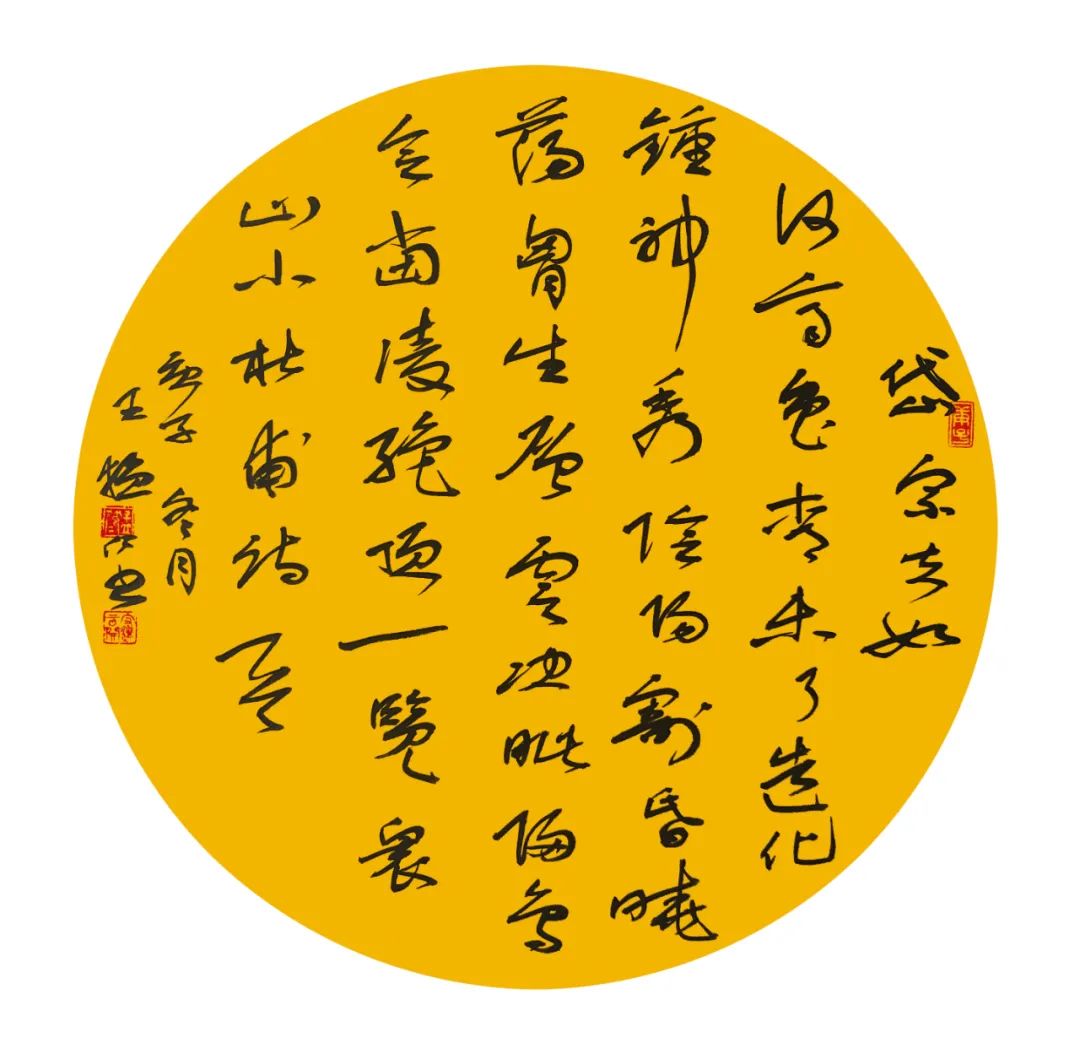 岱宗夫如
何齊魯青未了造化
鍾神秀陰陽割昏曉
蕩胷生层雲决眦歸鸟
会當凌絕頂一覽衆
山小杜甫詩一首
庚子冬月
王书